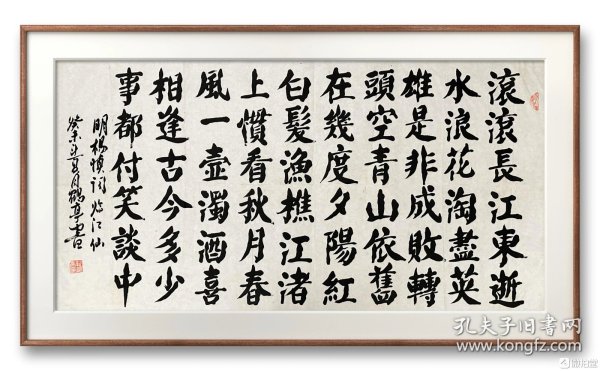 滾滾長江東逝
水浪花淘盡英
雄是非成敗轉
頭空青山依舊
在幾度夕陽紅
白髮漁樵江渚
上慣看秋月春
風一壺濁酒喜
相逢古今多少
事都付笑談中
明楊慎詞臨江仙
癸未年夏月鶴亭書
孔夫子旧书网
www.kongfz.com
微拍堂